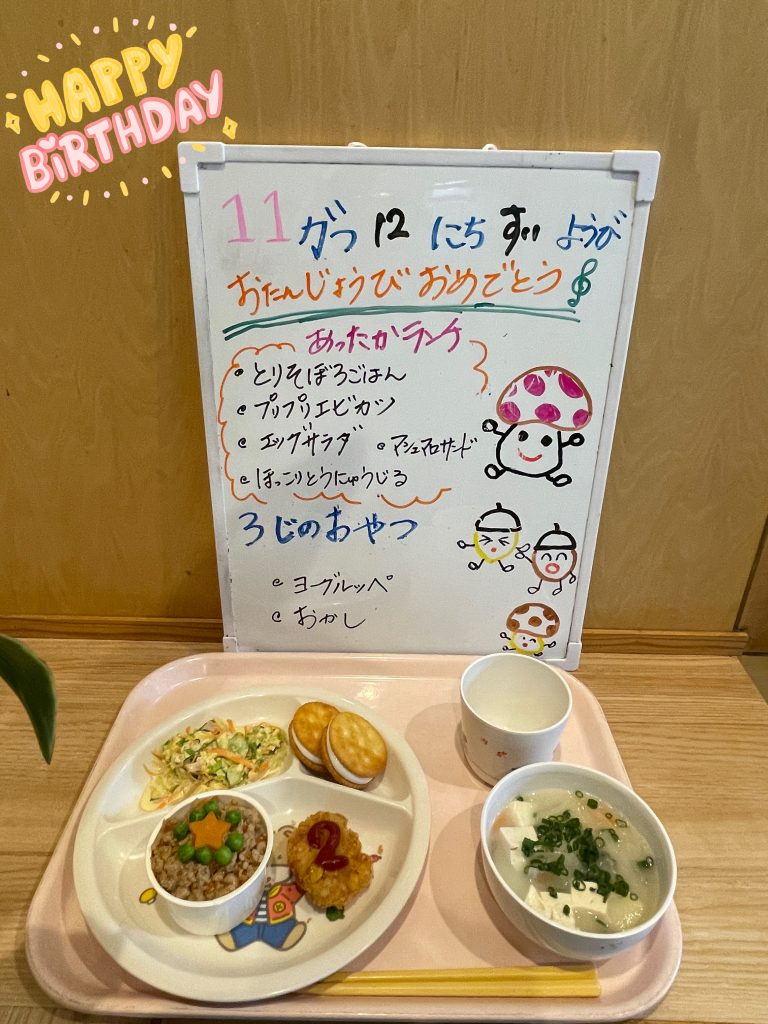 HAPPY
BiRTHDAY
11がつ12にちすいようび
おたんじょうびおめでとう
あったかランチ
・とりそぼろごはん
・プリプリエビカツ
・エッグサラダ ・マシュマロサンド
・ほっこりとうにゅうじる
3じのおやつ
・ヨーグルッペ
・おかし
2